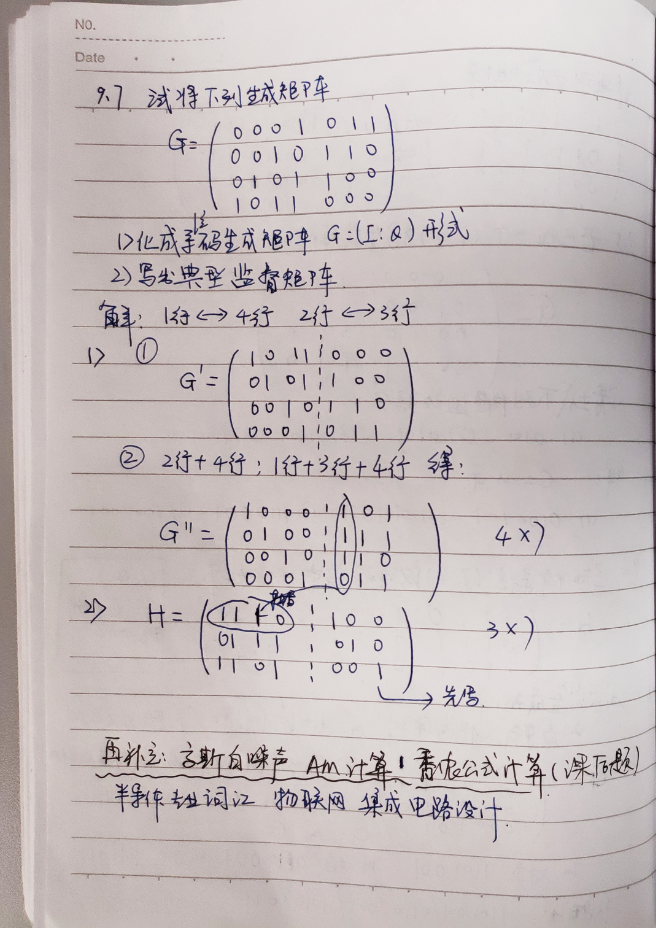 NO.
Date
9.7 试将下列生成矩阵
G= ( 0 0 0 1 0 1 1
0 0 1 0 1 1 0
0 1 0 1 1 0 0
1 0 1 1 0 0 0 )
1>化成系统码生成矩阵 G=(I:Q)形式
2>写出典型监督矩阵.
解: 1行<->4行 2行<->3行
1> ①
G'= ( 1 0 1 1 ¦ 0 0 0
0 1 0 1 ¦ 1 0 0
0 0 1 0 ¦ 1 1 0
0 0 0 1 ¦ 0 1 1 )
② 2行+4行; 1行+3行+4行 得:
G''= ( 1 0 0 0 ¦ 1 0 1
0 1 0 0 ¦ 1 1 1
0 0 1 0 ¦ 1 1 0
0 0 0 1 ¦ 0 1 1 ) 4×7
2> H= ( 1 1 1 0 ¦ 1 0 0
0 1 1 1 ¦ 0 1 0
1 1 0 1 ¦ 0 0 1 ) 3×7
再补充: 高斯白噪声 AM计算! 香农公式计算(课后题)
半导体专业词汇 物联网 集成电路设计.